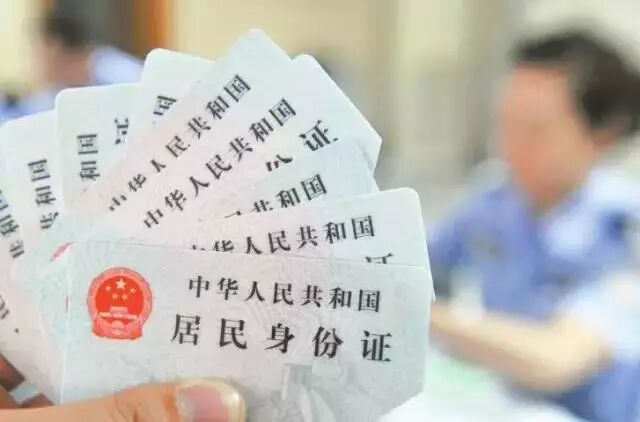 中华人民共和国
居民身份证
中华人民共和国
证
中华人民共和国
证
中华人民共和国
证
共和国
证
和国
民共和国